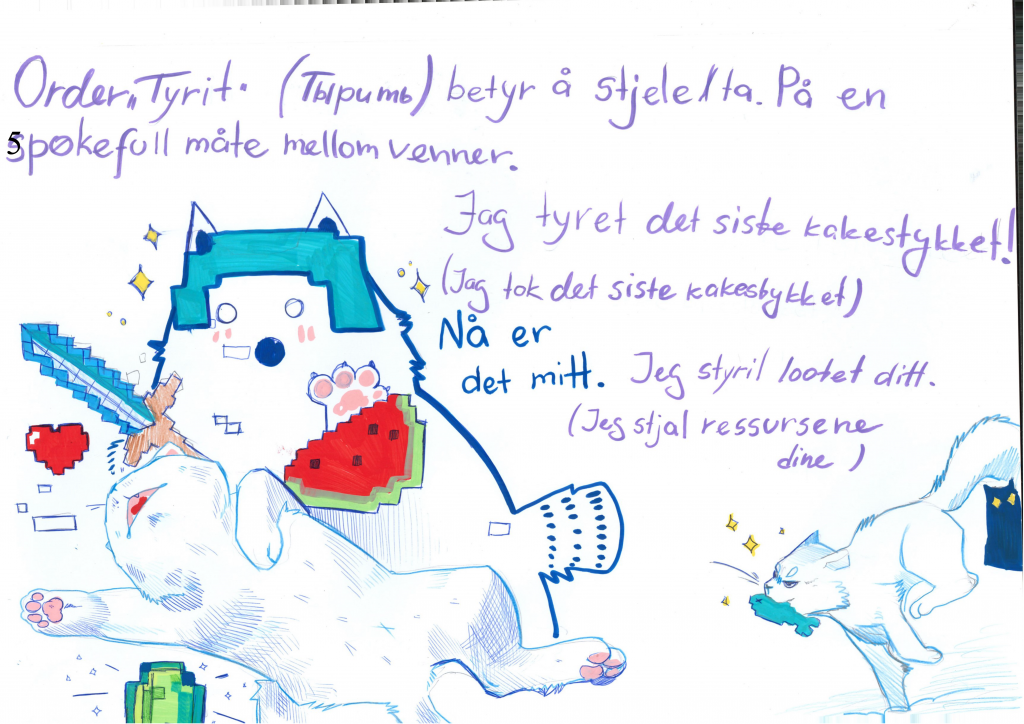 Order „Tyrit. (Тырить) betyr å stjele/ta. På en
spøkefull måte mellom venner.
5
Jag tyret det siste kakestykket!
(Jag tok det siste kakestykket)
Nå er
det mitt.
Jeg styril lootet ditt.
(Jeg stjal ressursene
dine)